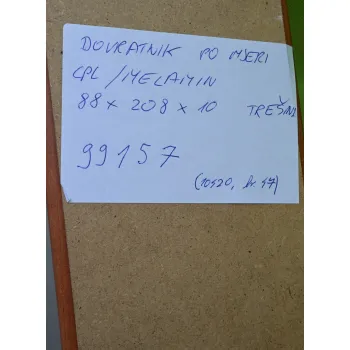 DOVRATNIK PO MJERI
CPL/MELAMIN
88 x 208 x 10 TREŠNJA
99157
(10520, br. 47)